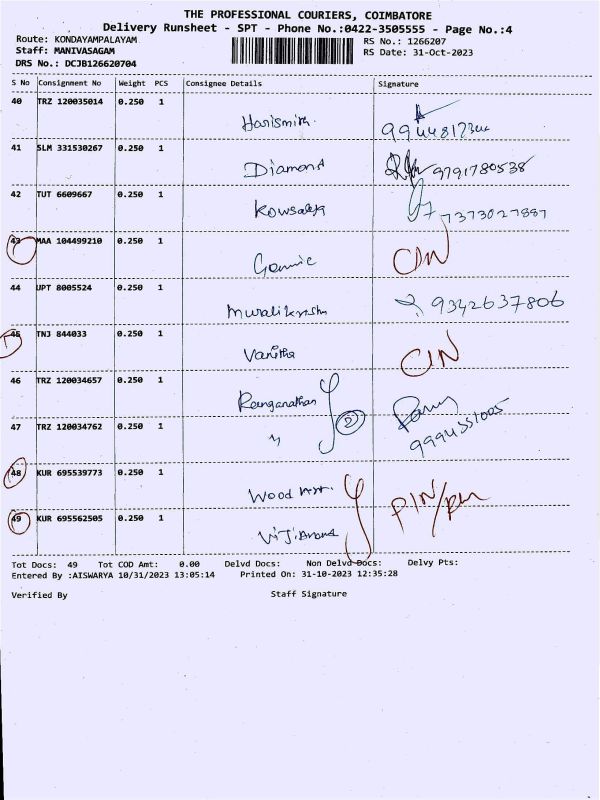 THE PROFESSIONAL COURIERS, COIMBATORE
Delivery Runsheet - SPT - Phone No.:0422-3505555 - Page No.:4
Route: KONDAYAMPALAYAM RS No.: 1266207
Staff: MANIVASAGAM RS Date: 31-Oct-2023
DRS No.: DCJB126620704
S No Consignment No Weight PCS Consignee Details Signature
40 TRZ 120035014 0.250 1
Harismith.
41 SLM 331530267 0.250 1
Diamond 9791780538
42 TUT 6609667 0.250 1
Kowsalya 7373027887
43 MAA 104499210 0.250 1
CIN
44 UPT 8005524 0.250 1
9342637806
45 TNJ 844033 0.250 1
Vanitha CIN
46 TRZ 120034657 0.250 1
Ranganathan 2
47 TRZ 120034762 0.250 1
9994551005
48 KUR 695539773 0.250 1
Wood PIN/
49 KUR 695562505 0.250 1
Tot Docs: 49 Tot COD Amt: 0.00 Delvd Docs: Non Delvd Docs: Delvy Pts:
Entered By :AISWARYA 10/31/2023 13:05:14 Printed On: 31-10-2023 12:35:28
Verified By Staff Signature